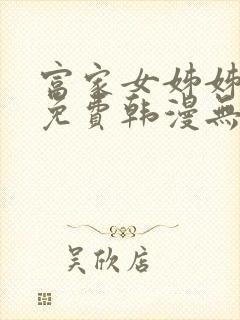 富家女姊姊
免費韩漫無
吴欣店